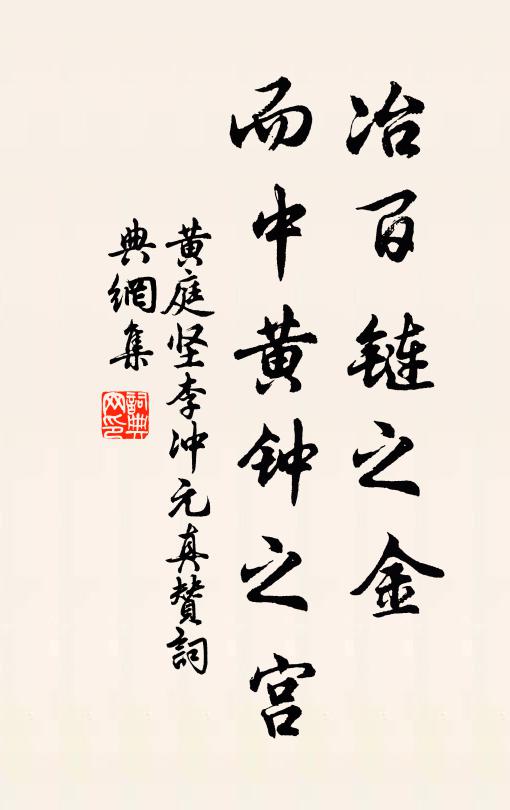 冶百鏈之金
而中黄钟之宫
黄庭坚李冲元真赞詞
典網集
詞典网印